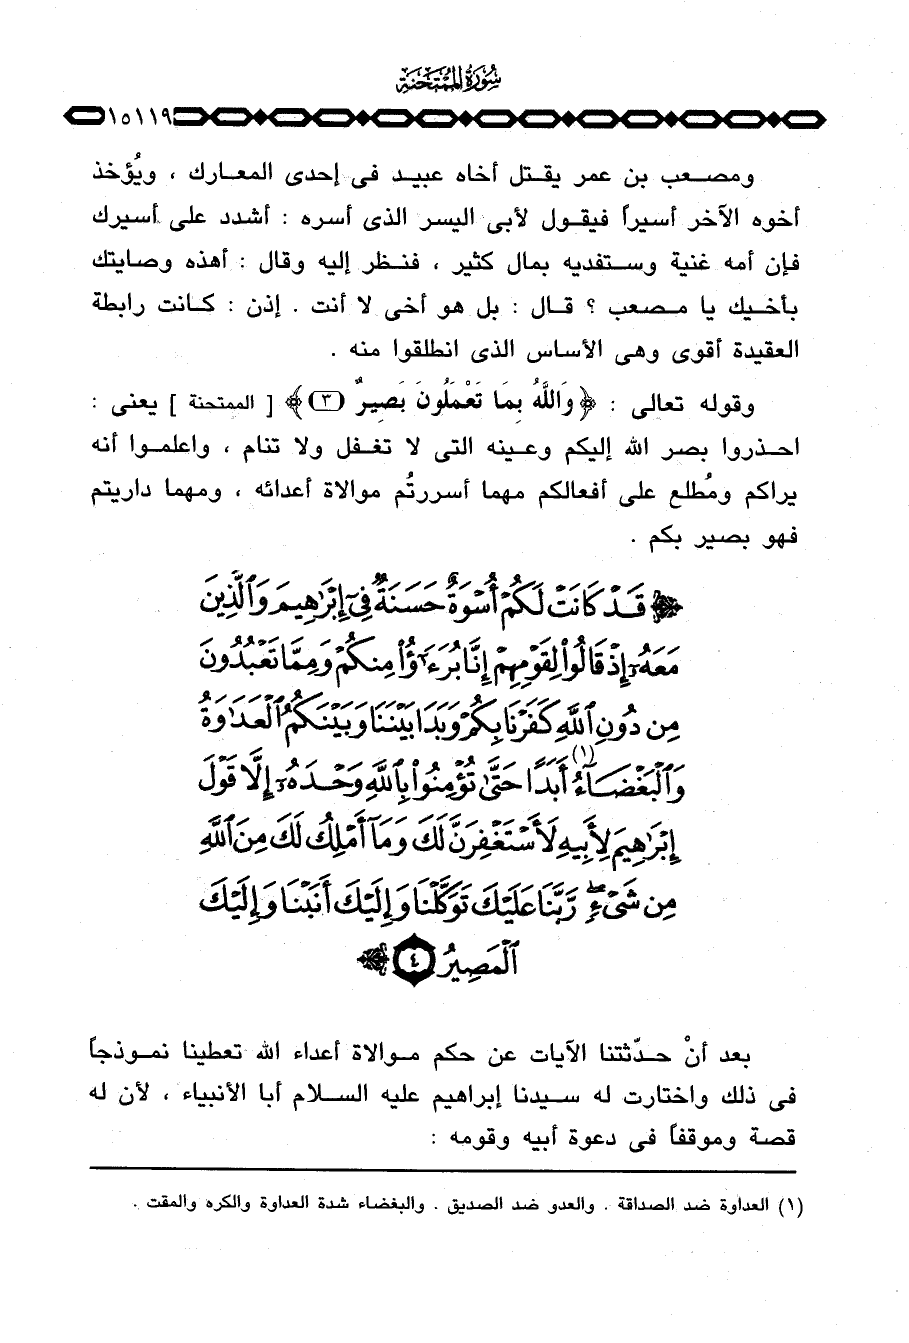 سورة الممتحنة
١٥١١٩
ومصعب بن عمر يقتل أخاه عبيد فى إحدى المعارك ، ويُؤخذ
أخوه الآخر أسيراً فيقول لأبى اليسر الذى أسره : أشدد على أسيرك
فإن أمه غنية وستفديه بمال كثير ، فنظر إليه وقال : أهذه وصايتك
بأخيك يا مصعب ؟ قال : بل هو أخى لا أنت . إذن : كانت رابطة
العقيدة أقوى وهى الأساس الذى انطلقوا منه .
وقوله تعالى : ﴿ وَاللَّهُ بِمَا تَعْمَلُونَ بَصِيرٌ (٣) ﴾ [ الممتحنة ] يعنى :
احذروا بصر الله إليكم وعينه التى لا تغفل ولا تنام ، واعلموا أنه
يراكم ومُطلع على أفعالكم مهما أسررتُم موالاة أعدائه ، ومهما داريتم
فهو بصير بكم .
﴿ قَدْ كَانَتْ لَكُمْ أُسْوَةٌ حَسَنَةٌ فِىٓ إِبْرَٰهِيمَ وَٱلَّذِينَ
مَعَهُۥٓ إِذْ قَالُوا۟ لِقَوْمِهِمْ إِنَّا بُرَءَٰٓؤُا۟ مِنكُمْ وَمِمَّا تَعْبُدُونَ
مِن دُونِ ٱللَّهِ كَفَرْنَا بِكُمْ وَبَدَا بَيْنَنَا وَبَيْنَكُمُ ٱلْعَدَٰوَةُ
وَٱلْبَغْضَآءُ (١) أَبَدًا حَتَّىٰ تُؤْمِنُوا۟ بِٱللَّهِ وَحْدَهُۥٓ إِلَّا قَوْلَ
إِبْرَٰهِيمَ لِأَبِيهِ لَأَسْتَغْفِرَنَّ لَكَ وَمَآ أَمْلِكُ لَكَ مِنَ ٱللَّهِ
مِن شَىْءٍ ۖ رَّبَّنَا عَلَيْكَ تَوَكَّلْنَا وَإِلَيْكَ أَنَبْنَا وَإِلَيْكَ
ٱلْمَصِيرُ ٤ ﴾
بعد أنْ حدّثتنا الآيات عن حكم موالاة أعداء الله تعطينا نموذجاً
فى ذلك واختارت له سيدنا إبراهيم عليه السلام أبا الأنبياء ، لأن له
قصة وموقفاً فى دعوة أبيه وقومه :
(١) العداوة ضد الصداقة . والعدو ضد الصديق . والبغضاء شدة العداوة والكره والمقت .